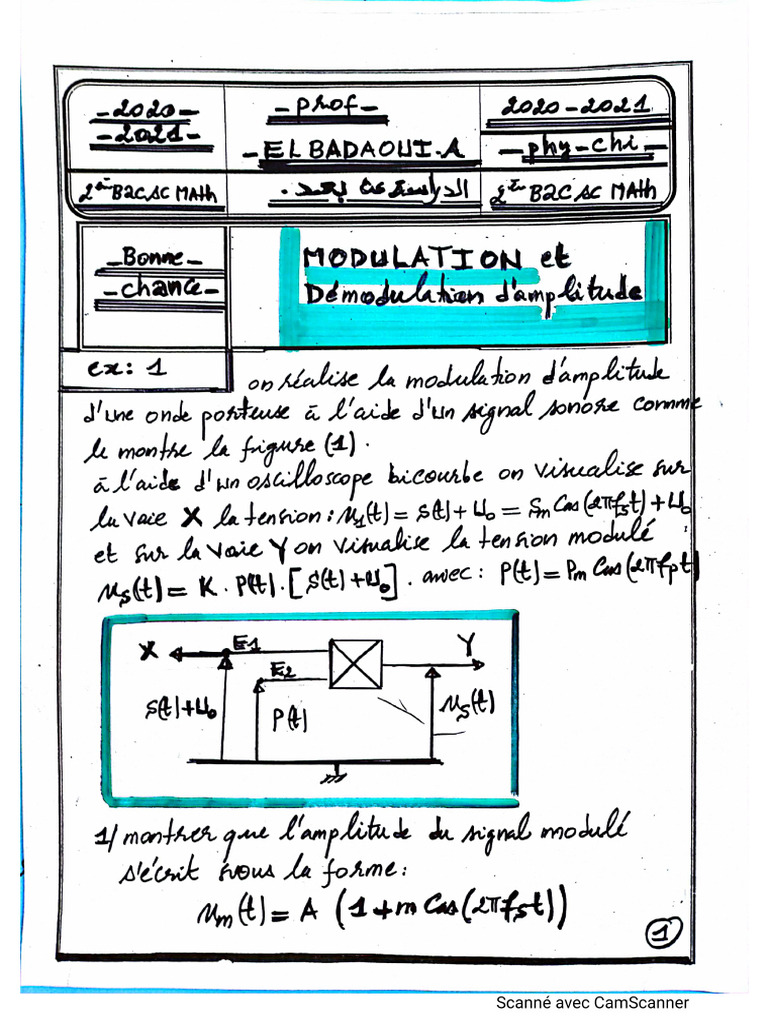 -2020-
-2021-
- Prof -
2020-2021
- EL BADAOUI.A
- phy-chi -
2ème B2C SC MATH
الدراسة عن بعد .
2ème B2C SC MATH
- Bonne -
- chance -
MODULATION et
Démodulation d'amplitude
ex: 1
on réalise la modulation d'amplitude
d'une onde porteuse à l'aide d'un signal sonore comme
le montre la figure (1).
à l'aide d'un oscilloscope bicourbe on visualise sur
la voie X la tension: u₁(t) = S(t) + U₀ = Sm Cos(2πfst) + U₀
et sur la voie Y on visualise la tension modulé :
us(t) = K. P(t). [S(t) + U₀]. avec: P(t) = Pm Cos(2πfpt)
X E1 Y
E2
S(t)+U₀ P(t) us(t)
1/ montrer que l'amplitude du signal modulé
s'écrit sous la forme:
um(t) = A (1 + m Cos(2πfst))
1
Scanné avec CamScanner